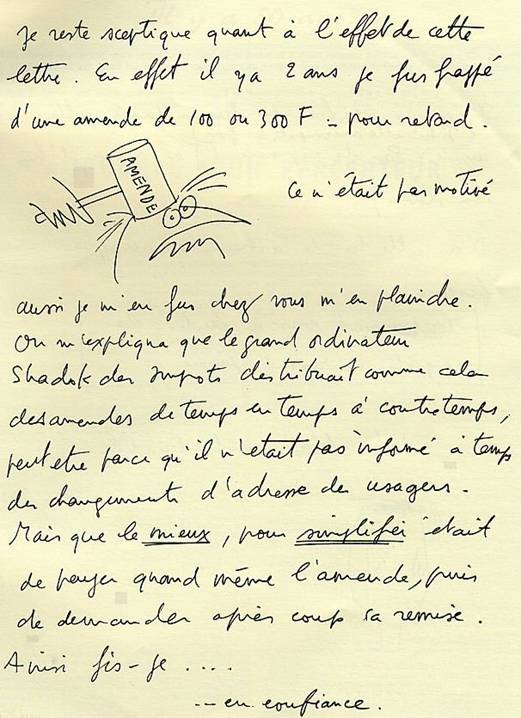 Je reste sceptique quant à l'effet de cette
lettre. En effet il y a 2 ans je fus frappé
d'une amende de 100 ou 300 F - pour retard.
AMENDE
Ce n'était pas motivé
aussi je m'en fus chez vous m'en plaindre.
On m'expliqua que le grand ordinateur
Shadok des Impots distribuait comme cela
des amendes de temps en temps à contretemps,
peut etre parce qu'il n'etait pas informé à temps
des changements d'adresse des usagers.
Mais que le mieux, pour simplifier etait
de payer quand même l'amende, puis
de demander après coup sa remise.
Ainsi fis-je ....
-- en confiance.